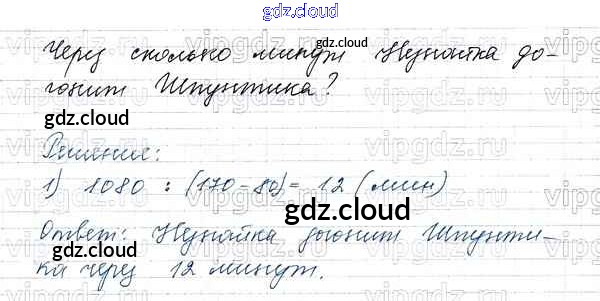 gdz.cloud
Через сколько минут Незнайка до-
gdz.cloud
гонит Шпунтика?
gdz.cloud
Решение:
1) 1080 : (170 - 80) = 12 (мин)
gdz.cloud
Ответ: Незнайка догонит Шпунти-
ка через 12 минут.
gdz.cloud